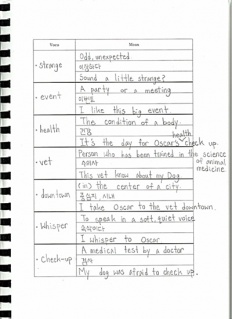 Voca
Mean
· Strange
Odd, unexpected
이상하다
Sound a little strange?
· event
A party or a meeting
I like this big event
· health
The condition of a body.
건강
health
It's the day for Oscar's check up.
· vet
Person who has been trained in the science of animal medicine.
수의사
This vet know about my Dog
· downtown
(in) the center of a city.
I take Oscar to the vet downtown.
· Whisper
To speak in a soft, quiet voice
속삭이다
I whisper to Oscar
· Check-up
A medical test by a doctor
My dog was afraid to check up.